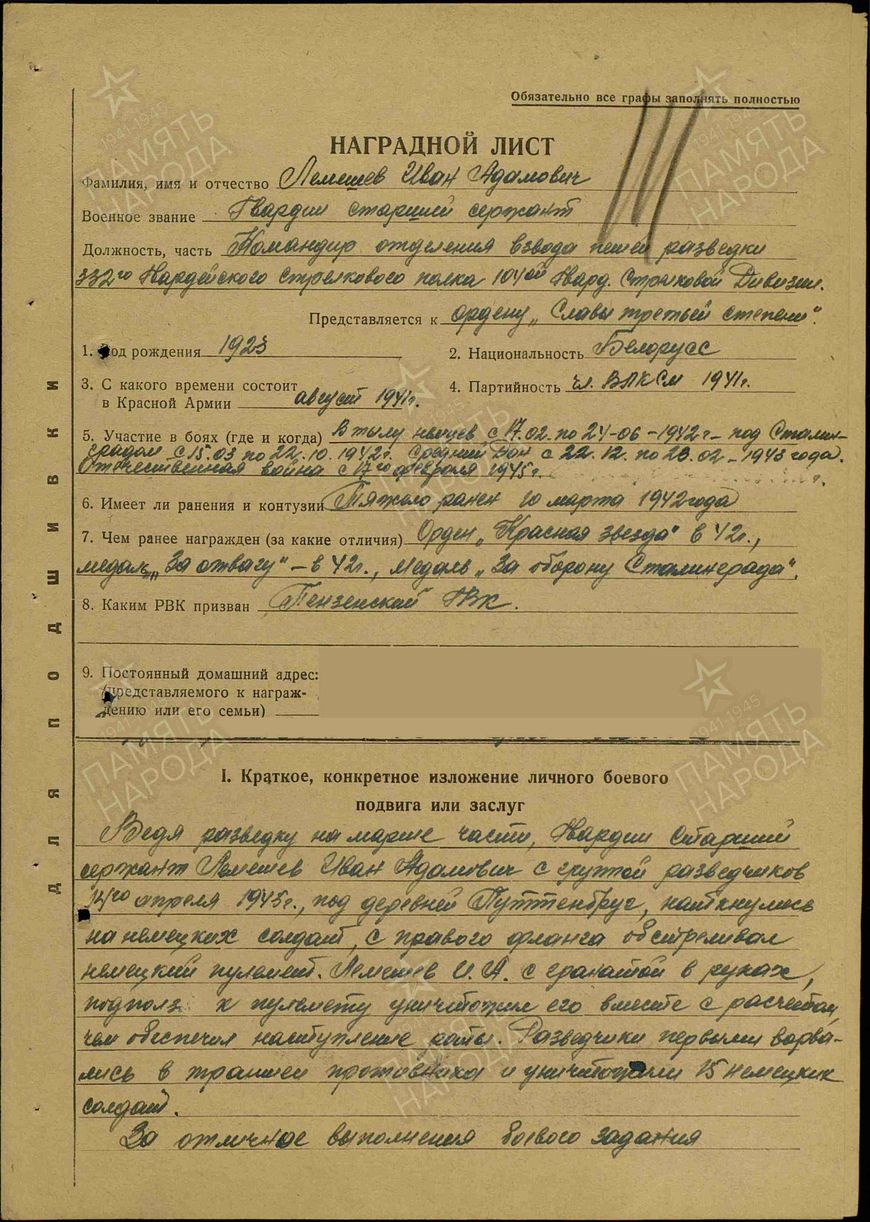 Обязательно все графы заполнять полностью
НАГРАДНОЙ ЛИСТ
Фамилия, имя и отчество Лемешев Иван Адамович
Военное звание Гвардии старший сержант
Должность, часть Командир отделения взвода пешей разведки
332го Гвардейского стрелкового полка 104ой Гвард. Стрелковой Дивизии.
Представляется к ордену „Славы третьей степени".
1. Год рождения 1923
2. Национальность Белорусс
3. С какого времени состоит
в Красной Армии август 1941г.
4. Партийность чл. ВЛКСМ 1941г.
5. Участие в боях (где и когда) В тылу немцев с 17.02. по 24-06-1942г- под Сталин-
градом с 15.03 по 22.10.1942г. Средний Дон с 22.12. по 23.02-1943 года.
Отечественная война с 17го февраля 1945г.
6. Имеет ли ранения и контузии Тяжело ранен 10 марта 1942 года
7. Чем ранее награжден (за какие отличия) Орден „Красная звезда" в 42г.,
медаль „За отвагу"-в 42г., Медаль „За оборону Сталинграда".
8. Каким РВК призван Пензенский ГВК.
9. Постоянный домашний адрес:
(представляемого к награж-
дению или его семьи)
ДЛЯ ПОДШИВКИ
I. Краткое, конкретное изложение личного боевого
подвига или заслуг
Ведя разведку на марше части, Гвардии Старший
сержант Лемешев Иван Адамович с группой разведчиков
14го апреля 1945г., под деревней Путтенбрус, наткнулись
на немецких солдат, с правого фланга обстреливал
немецкий пулемет. Лемешев И.А. с гранатой в руках,
подполз к пулемету уничтожил его вместе с расчетом,
чем обеспечил наступление роты. Разведчики первыми ворва-
лись в траншеи противника и уничтожили 15 немецких
солдат.
За отличное выполнения боевого задания
1941-1945
ПАМЯТЬ
НАРОДА